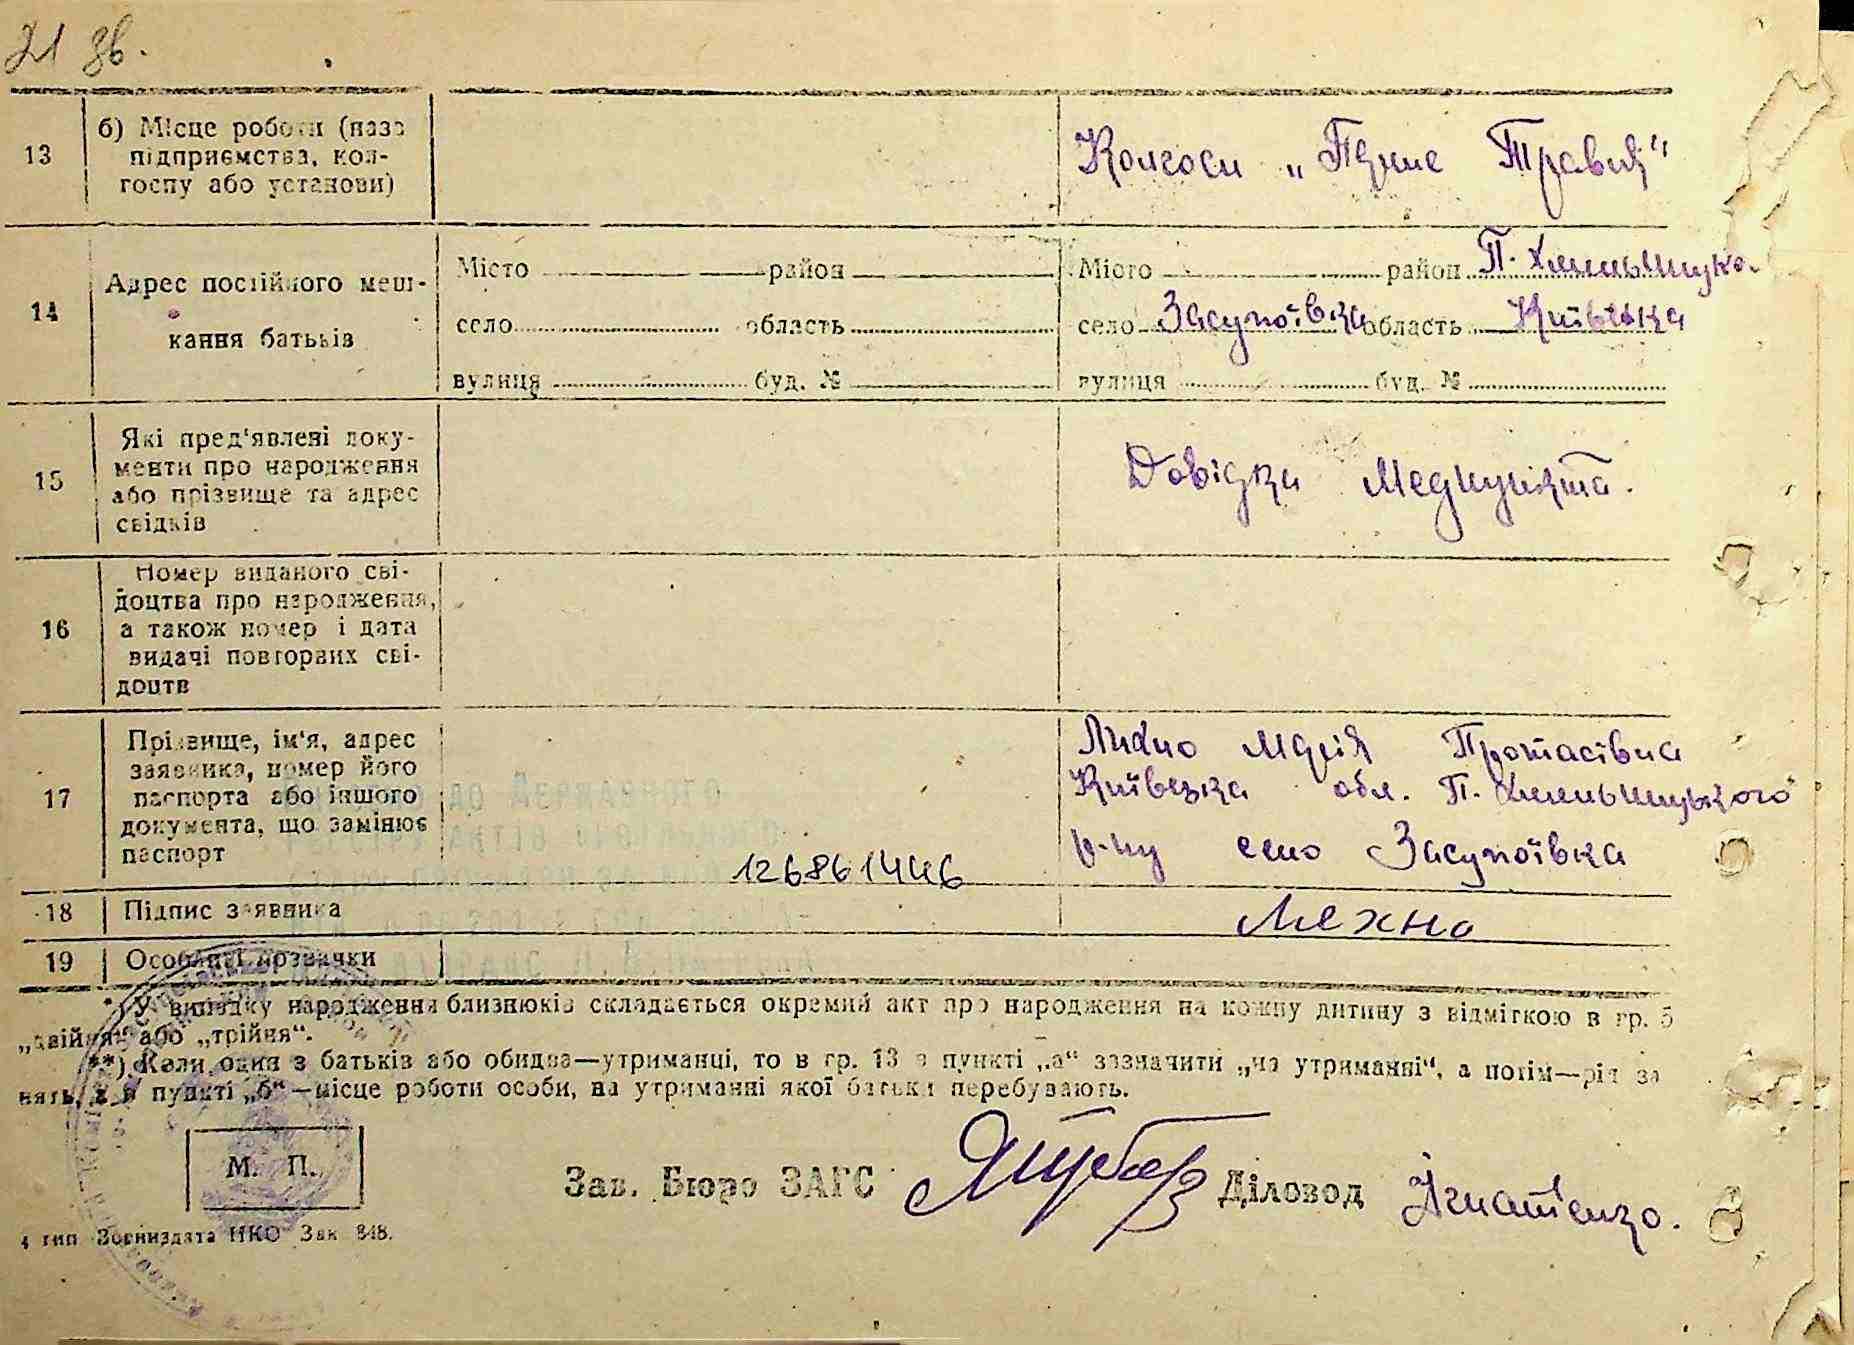 21 зв.
13
б) Місце роботи (назв
підприємства, кол-
госпу або установи)
Колгосп „Перше Травня"
14
Адрес постійного меш-
кання батьків
Місто район
село область
вулиця буд. №
Місто район П. Хмельницько.
село Засупоївка область Київська
вулиця буд. №
15
Які пред'явлені доку-
менти про народження
або прізвище та адрес
свідків
Довідка Медпункта.
16
Номер виданого сві-
доцтва про народження,
а також номер і дата
видачі повторних сві-
доцтв
17
Прізвище, ім'я, адрес
заявника, номер його
паспорта або іншого
документа, що замінює
паспорт
Марія Протасівна
Київська обл. П. Хмельницького
р-ну село Засупоївка
126861446
18
Підпис заявника
Ляхно
19
Особливі позначки
*) У випадку народження близнюків складається окремий акт про народження на кожну дитину з відміткою в гр. 5
„двійня" або „трійня".
**) Коли один з батьків або обидва—утриманці, то в гр. 13 в пункті „а" зазначити „на утриманні", а потім—рід за
нять, а в пункті „б"—місце роботи особи, на утриманні якої батьки перебувають.
М. П.
Зав. Бюро ЗАГС
Діловод Ігнатенко.
4 тип Воениздата НКО Зак 848.